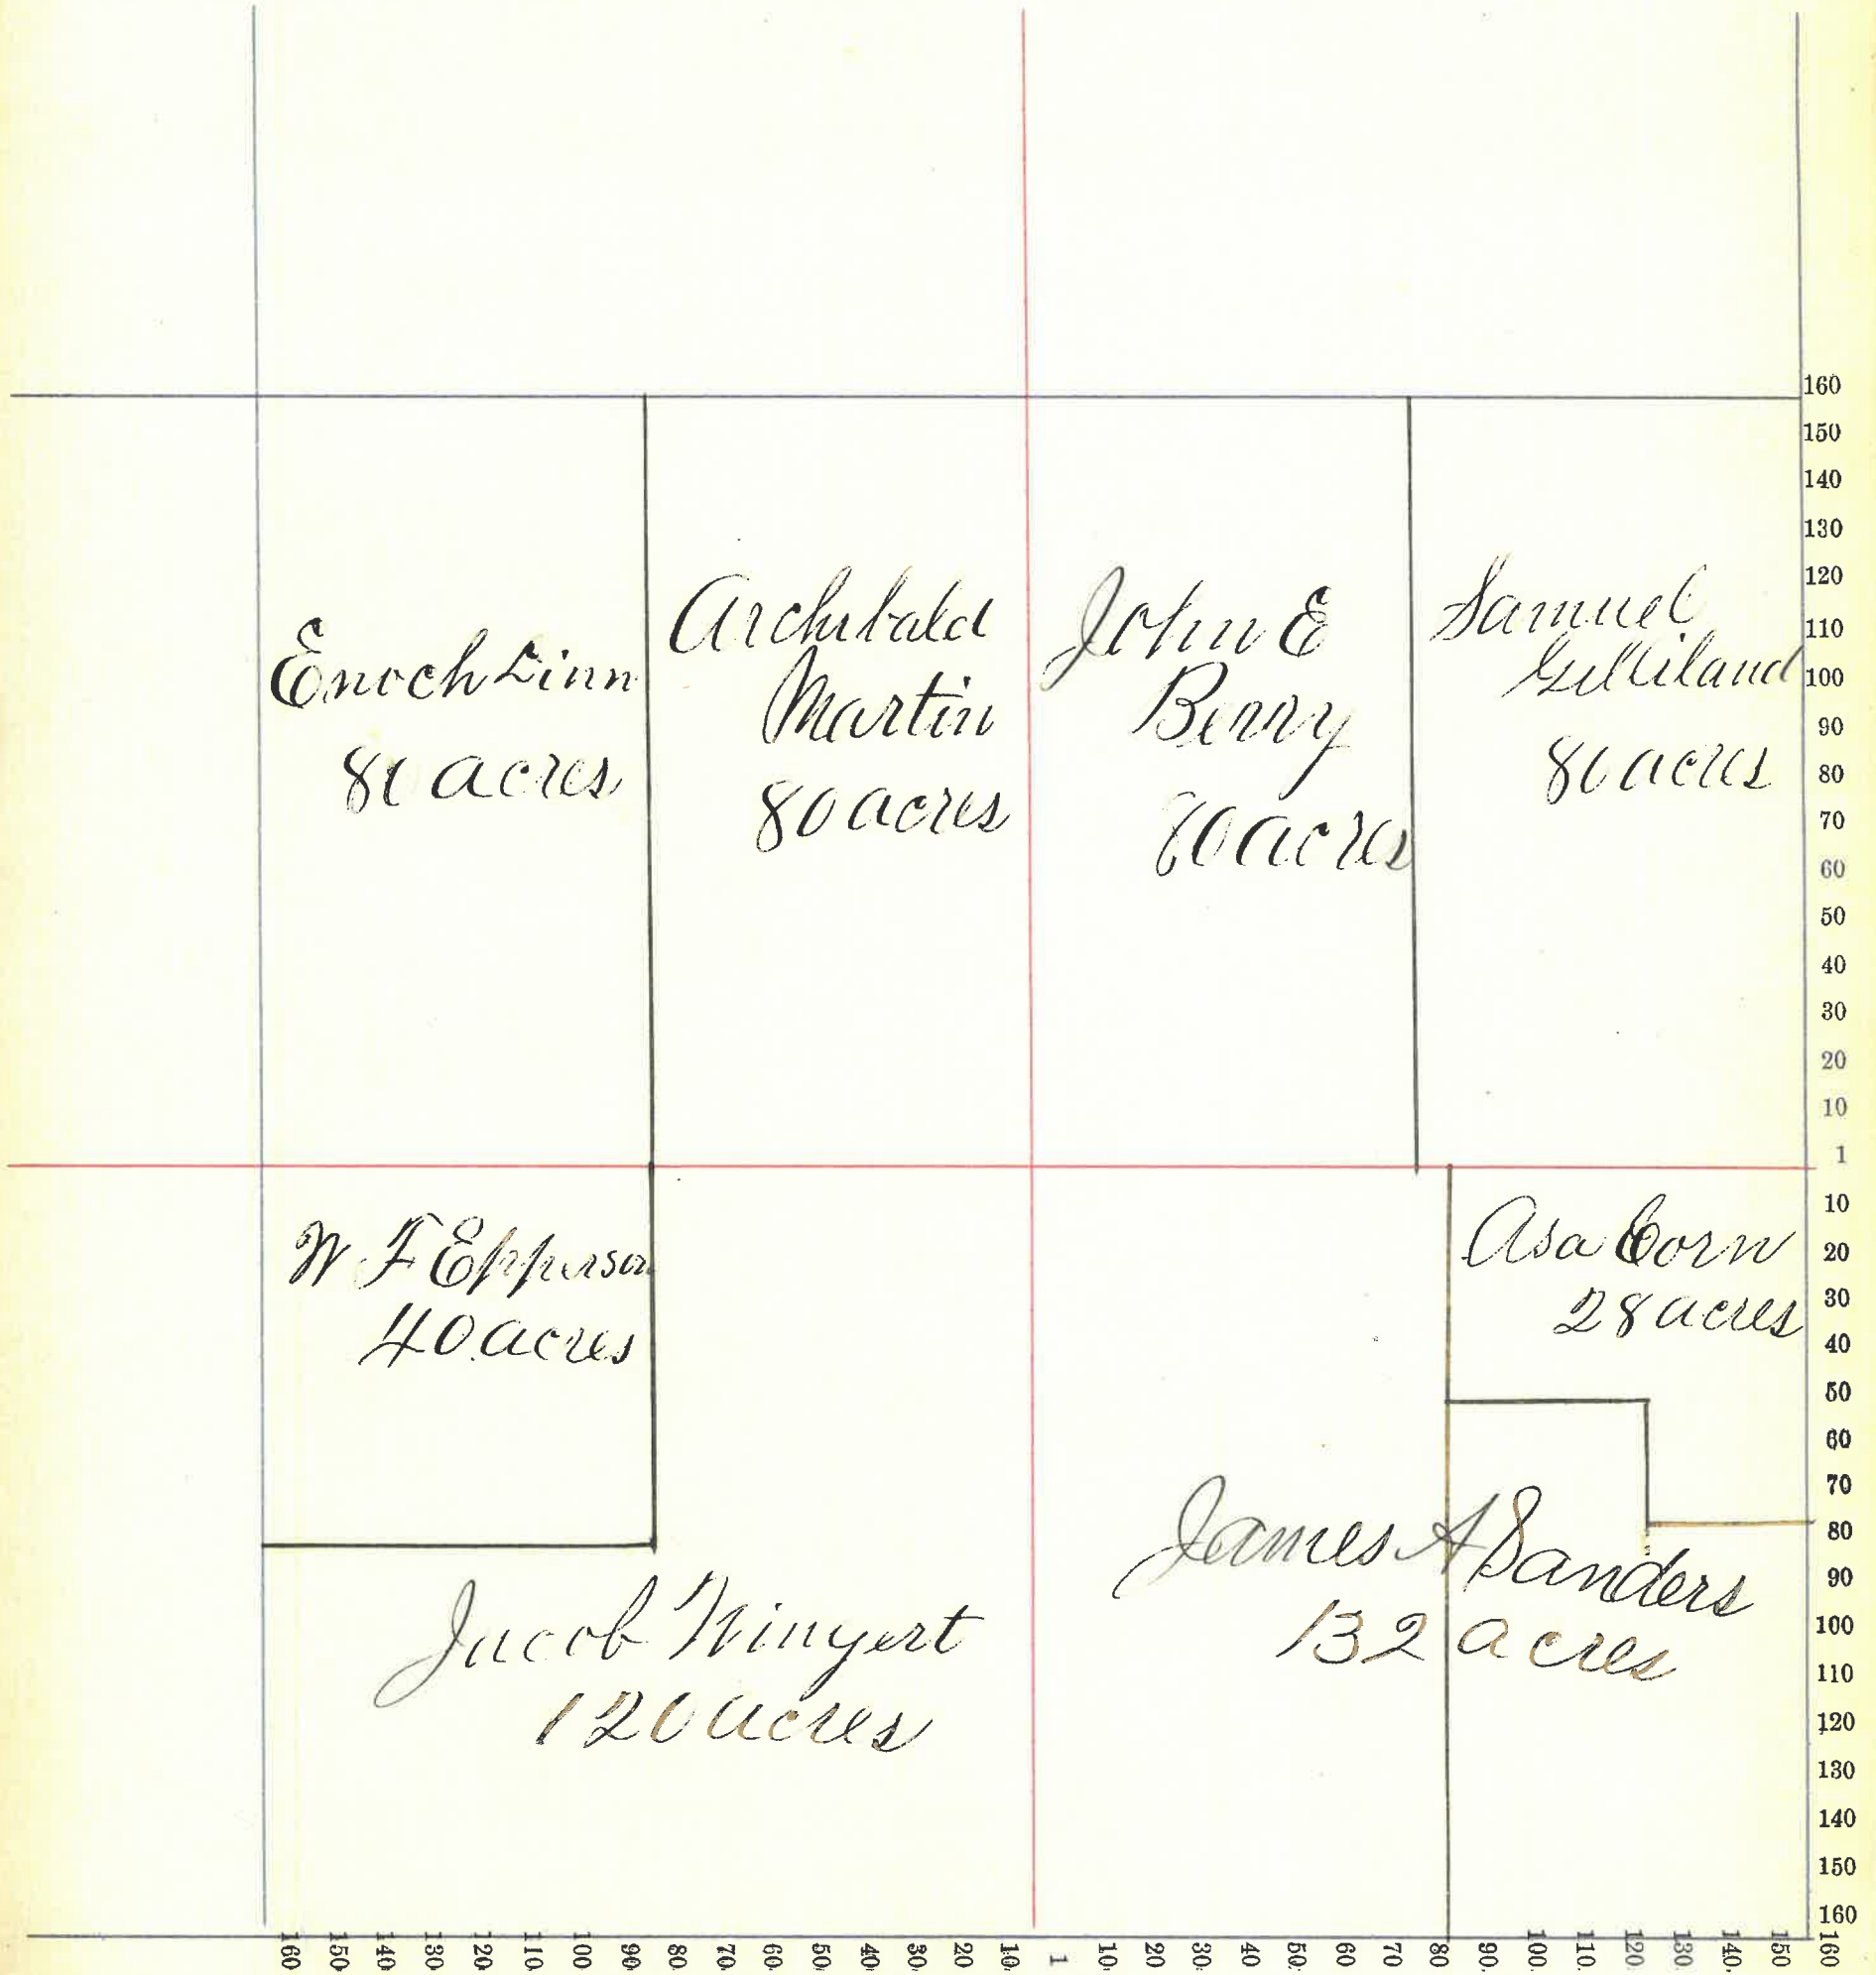 Enoch Linn
80 acres
Archibald
Martin
80 acres
John E
Berry
80 acres
Samuel
Gilliland
80 acres
W F Epperson
40 acres
Asa Corn
28 acres
Jacob Winyert
120 acres
James A Sanders
132 acres
160
150
140
130
120
110
100
90
80
70
60
50
40
30
20
10
1
10
20
30
40
50
60
70
80
90
100
110
120
130
140
150
160
160 150 140 130 120 110 100 90 80 70 60 50 40 30 20 10 1 10 20 30 40 50 60 70 80 90 100 110 120 130 140 150 160